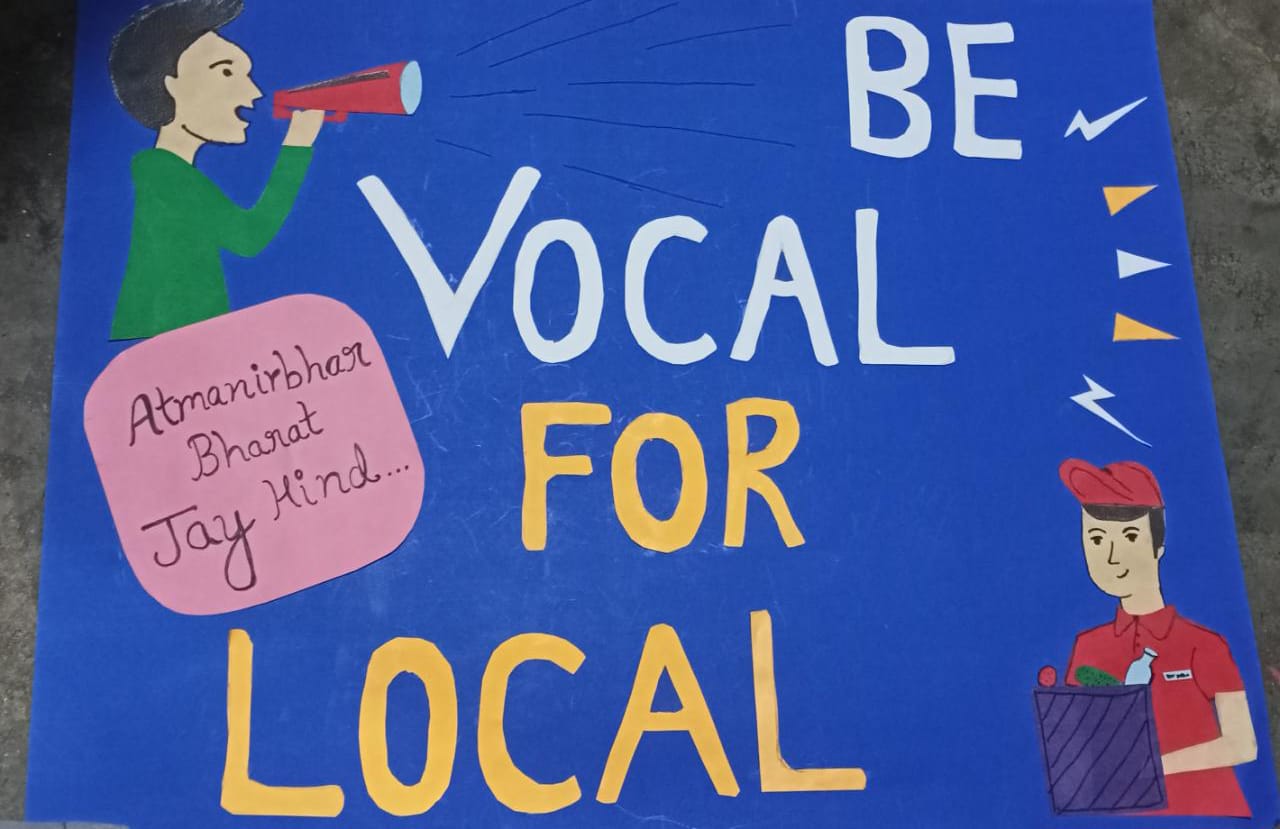 BE
VOCAL
FOR
LOCAL
Atmanirbhar
Bharat
Jay Hind...